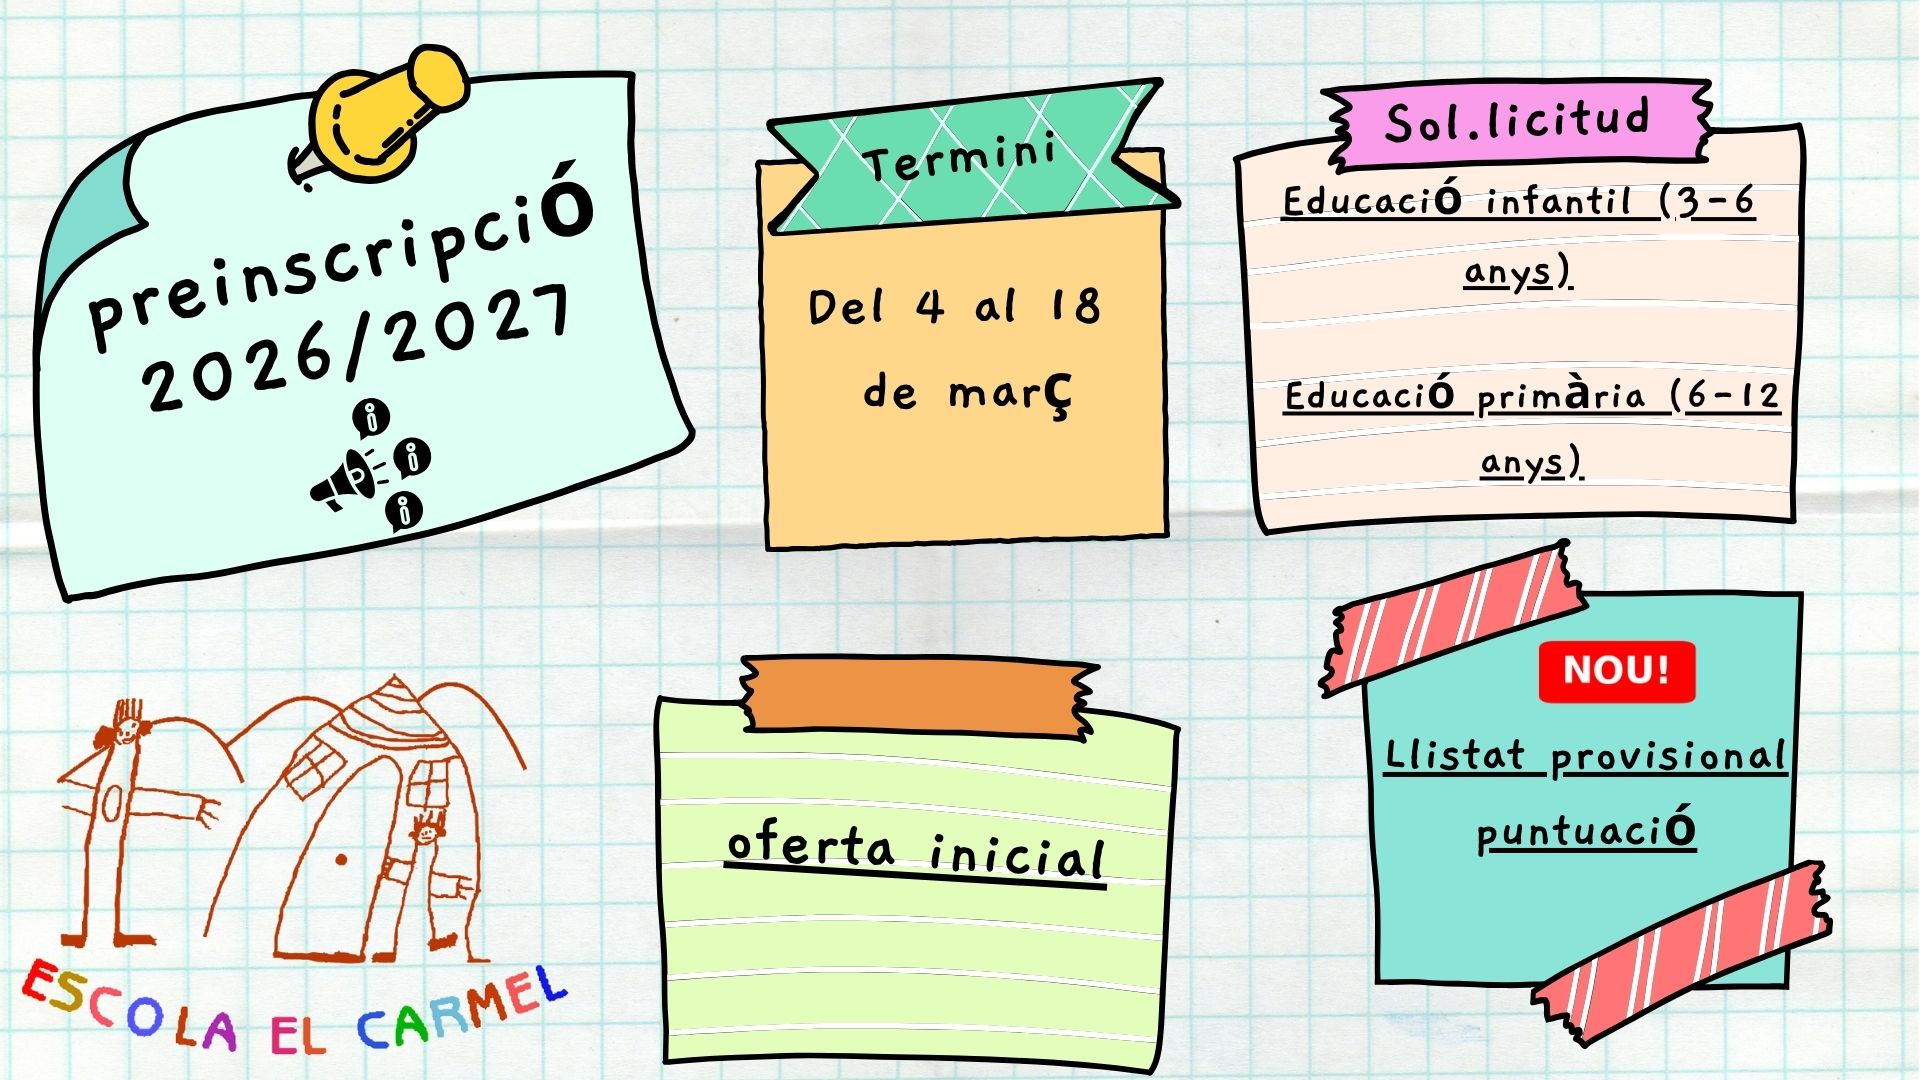 preinscripció
2026/2027
Termini
Del 4 al 18
de març
Sol.licitud
Educació infantil (3-6
anys)
Educació primària (6-12
anys)
ESCOLA EL CARMEL
oferta inicial
NOU!
Llistat provisional
puntuació